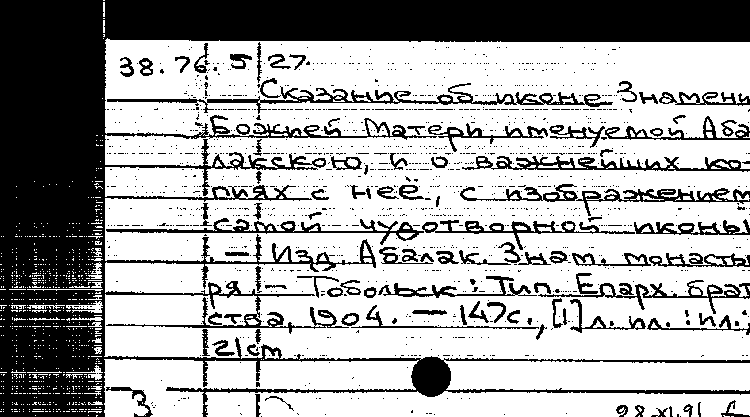 38.76.5 27.
Сказанiе об иконе Знамени
Божией Матери, именуемой Аба
лакскою, и о важнейших ко-
пиях с неё, с изображением
самой чудотворной иконы
. — Изд. Абалак. Знам. монасты
ря. — Тобольск : Тип. Епарх. брат
ства, 1904. — 147с., [1] л. ил. : ил.;
21cm.
3